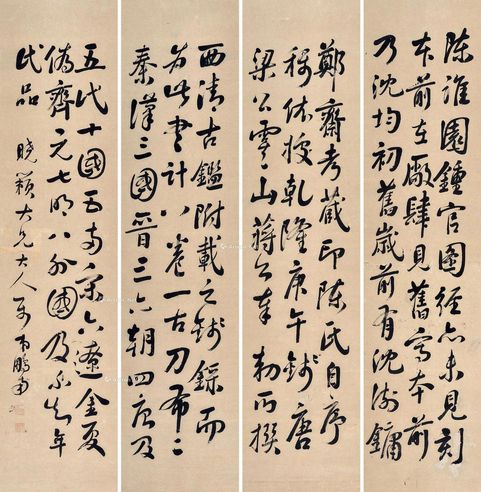 陈淮園鍾官圖徑亦未見刻
本前在廠肆見舊寫本前
乃沈均初舊歲前有沈樹鏞
鄭齋考藏印陳氏自序
稱依授乾隆庚午錢唐
梁公雲山蔣公奉勅所撰
西清古鑑附載之錢錄而
為此書計八卷一古刀布二
秦漢三國晋三六朝四唐及
五代十國五南宋六遼金夏
偽齊元七明八外國及不知年
代品
曉穎大兄大人